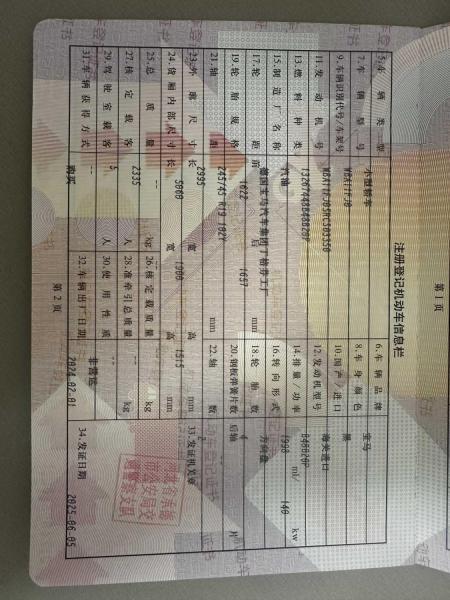 第1页
注册登记机动车信息栏
5.车辆类型 小型轿车 6.车辆品牌 宝马
7.车辆型号 WBA11FJ0 8.车身颜色 黑
9.车辆识别代号/车架号 10.国产/进口 海关进口
11.发动机号 12.发动机型号 B48B20P
13.燃料种类 汽油 14.排量/功率 1998 ml/ 140 kw
15.制造厂名称 德国宝马汽车集团丁格芬工厂 16.转向形式 方向盘
17.轮距 前 1622 后 1657 mm 18.轮胎数 4
19.轮胎规格 245/45 R19 102Y 20.钢板弹簧片数 后轴 片
21.轴距 2995 mm 22.轴数 2
23.外廓尺寸 长 5060 宽 1900 高 1515 mm 33.发证机关章
24.货厢内部尺寸 长 宽 高 mm
25.总质量 2335 kg 26.核定载质量 kg
27.核定载客 5 人 28.准牵引总质量 kg
29.驾驶室载客 人 30.使用性质 非营运
31.车辆获得方式 购买 32.车辆出厂日期 2024-02-01 34.发证日期 2025-06-05
第2页